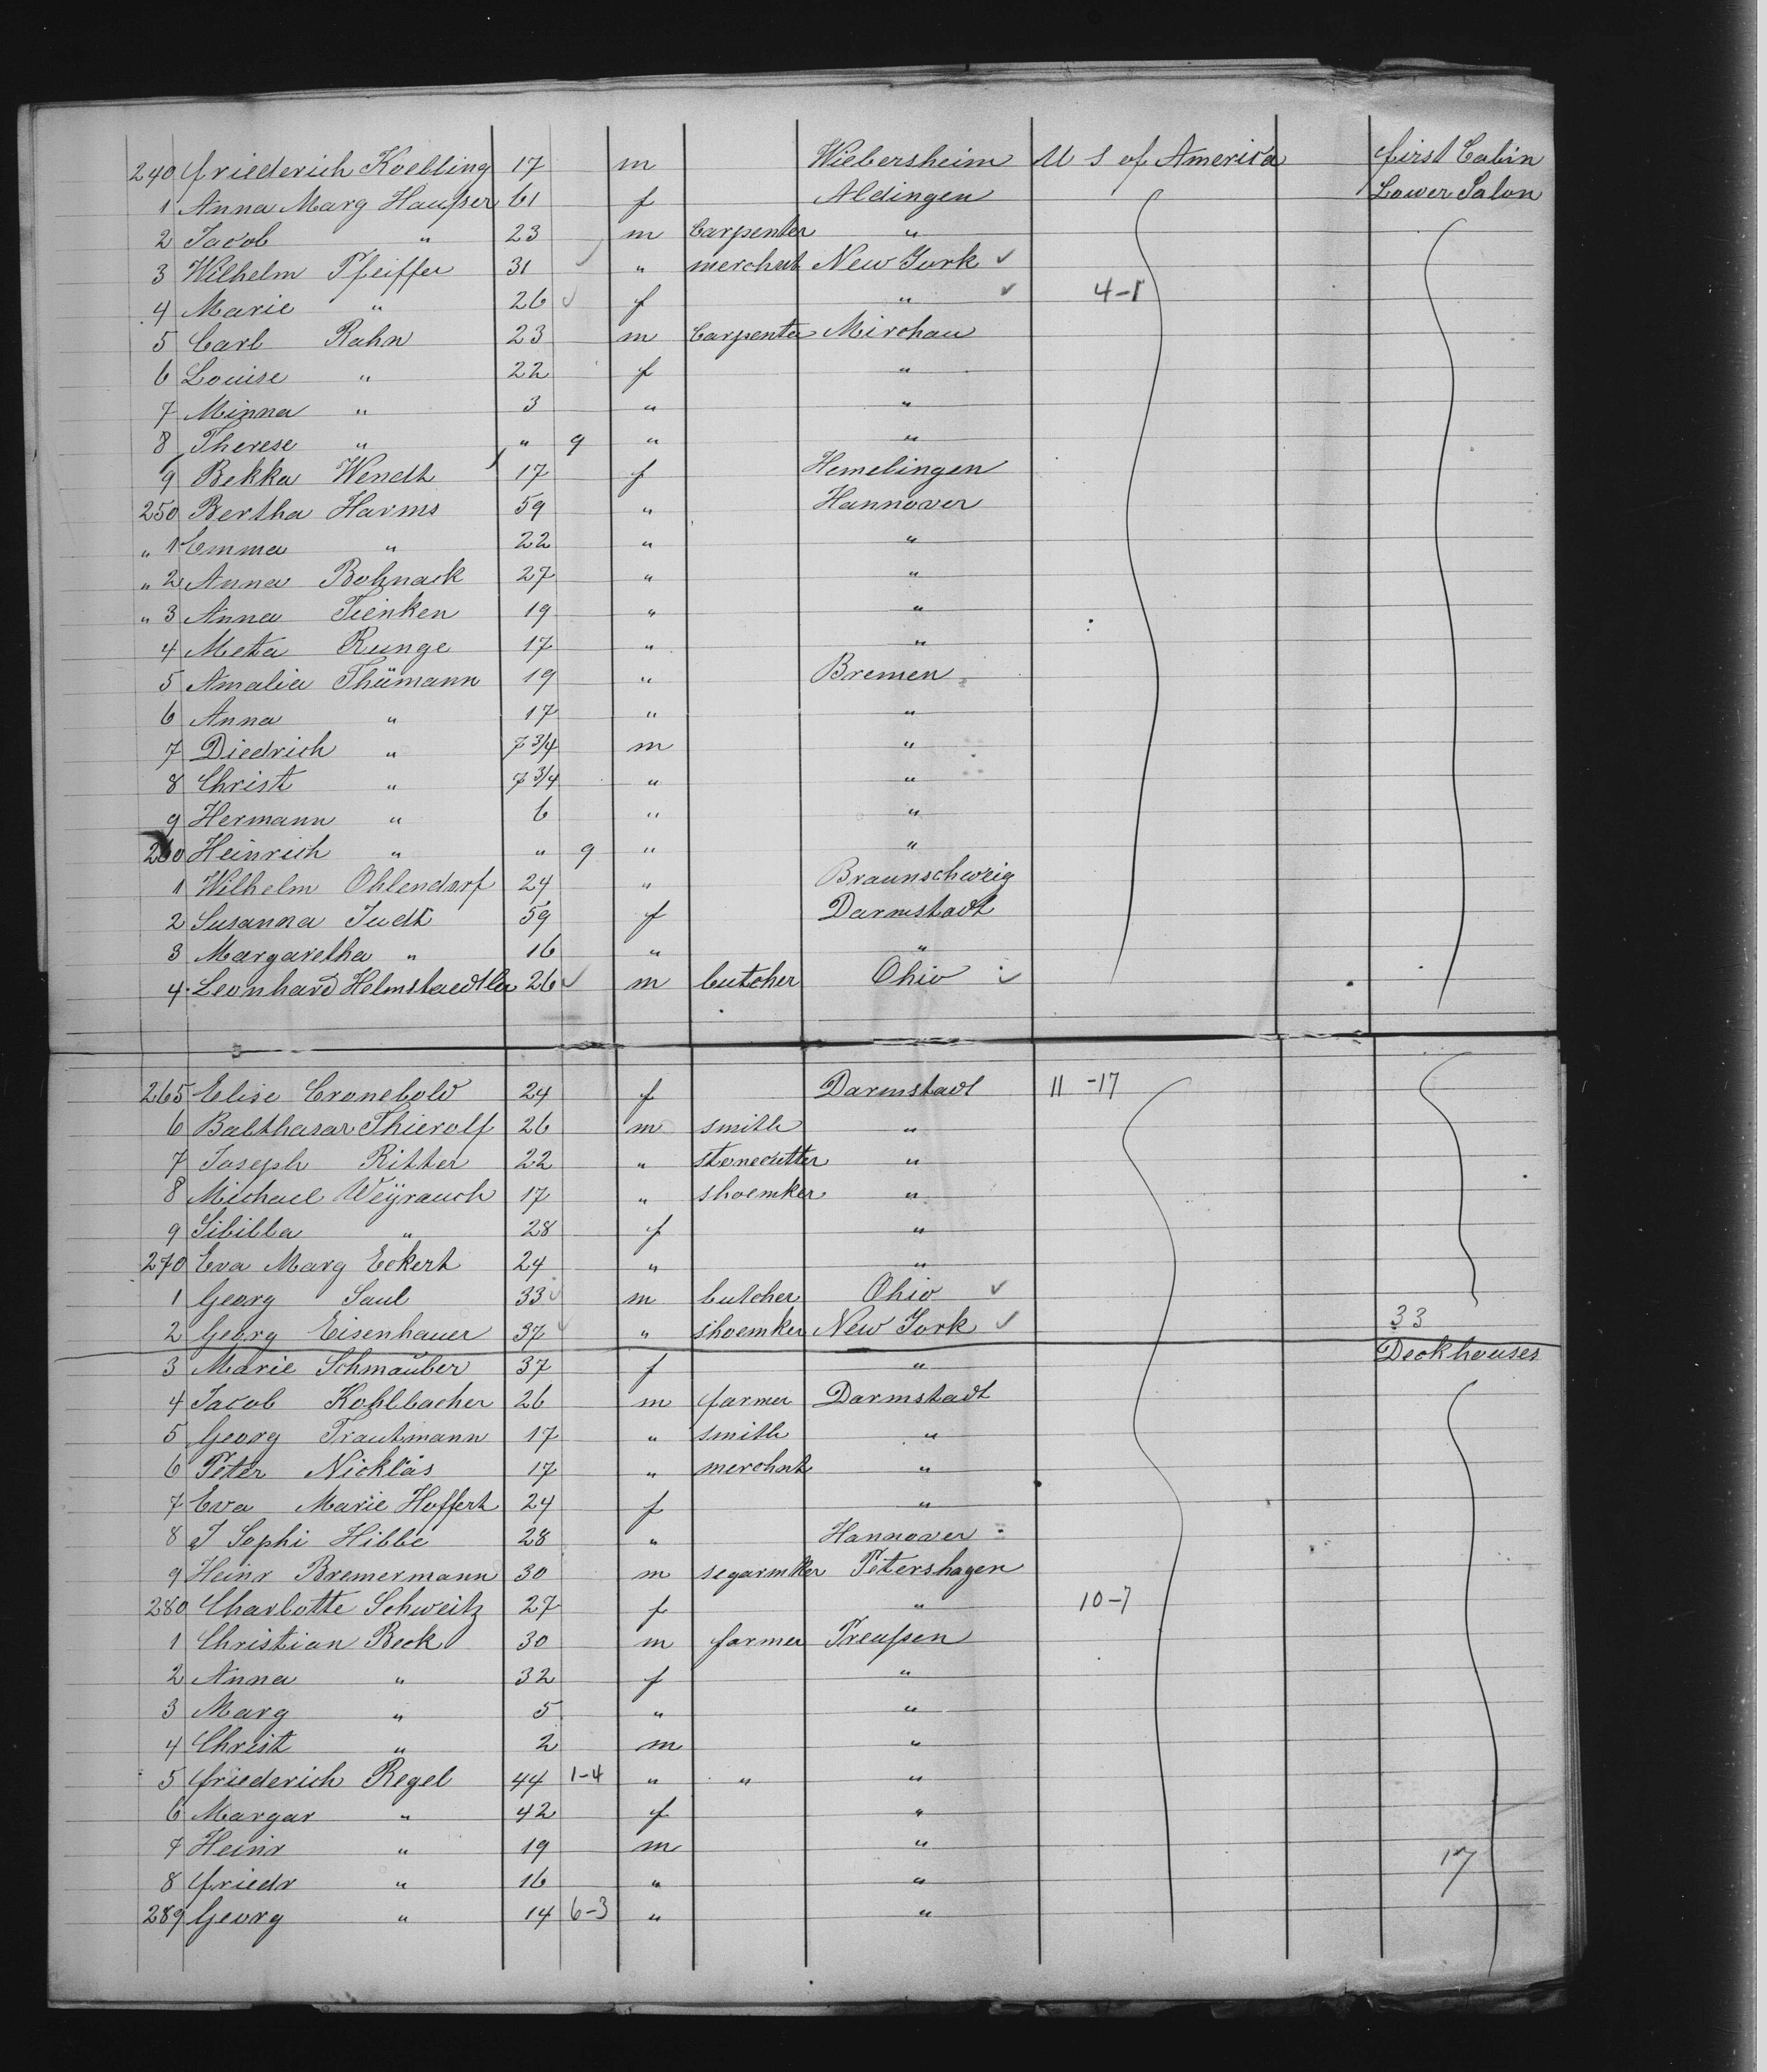 240 Friederich Koelling 17 m Wiebersheim U S of America first Cabin
1 Anna Marg Haußer 61 f Aldingen Lower Salon
2 Jacob " 23 m Carpenter "
3 Wilhelm Pfeiffer 31 " merchnt New York ✓
4 Marie " 26 ✓ f " ✓ 4-1
5 Carl Rahn 23 m Carpenter Mirchau
6 Louise " 22 f "
7 Minna " 3 " "
8 Therese " " 9 " "
9 Bekka Wendt 17 f Hemelingen
250 Bertha Harms 59 " Hannover
" 1 Emma " 22 " "
" 2 Anna Bohnack 27 " "
" 3 Anna Tienken 19 " "
4 Meta Runge 17 " "
5 Amalia Thümann 19 " Bremen
6 Anna " 17 " "
7 Diedrich " 7 3/4 m "
8 Christ " 7 3/4 " "
9 Hermann " 6 " "
260 Heinrich " " 9 " "
1 Wilhelm Ohlendorf 24 " Braunschweig
2 Susanna Judt 59 f Darmstadt
3 Margaretha " 16 " "
4 Leonhard Helmstaedtler 26 ✓ m butcher Ohio ✓
265 Elise Cronebold 24 f Darmstadt 11-17
6 Balthasar Thierolf 26 m smith "
7 Joseph Ritter 22 " stonecutter "
8 Michael Weÿrauch 17 " shoemker "
9 Sibilla " 28 f "
270 Eva Marg Eckert 24 " "
1 Georg Saul 33 ✓ m butcher Ohio ✓
2 Georg Eisenhauer 37 ✓ " shoemker New York ✓ 33
3 Marie Schmauber 37 f " Deckhouses
4 Jacob Kohlbacher 26 m farmer Darmstadt
5 Georg Trautmann 17 " smith "
6 Peter Nickläs 17 " merchnt "
7 Eva Marie Hoffert 24 f "
8 J Sophi Hibbe 28 " Hannover
9 Heinr Bremermann 30 m segarmker Petershagen
280 Charlotte Schweitz 27 f " 10-7
1 Christian Beck 30 m farmer Preußen
2 Anna " 32 f "
3 Marg " 5 " "
4 Christ " 2 m "
5 Friederich Regel 44 1-4 " " "
6 Margar " 42 f "
7 Heinr " 19 m " 17
8 Friedr " 16 " "
289 Georg " 14 6-3 " "